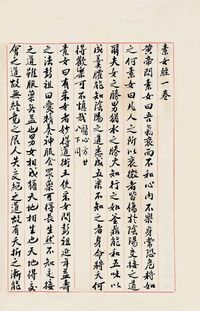 素女經一卷
黃帝問素女曰吾氣衰而不和心內不樂身常恐危將如
之何素女曰凡人之所以衰微者皆傷於陰陽交接之道
爾夫女之勝男猶水之勝火知行之如釜鼎能和五味以
成羹臛能知陰陽之道悉成五樂不知之者身命將夭何
得歡樂可不慎哉
素女曰有采女者妙得道術王使采女問彭祖延年益壽
之法彭祖曰愛精養神服食眾藥可得長生然不知交接
之道雖服藥無益也男女相成猶天地相生也天地得交
會之道故無終竟之限人失交接之道故有夭折之漸能